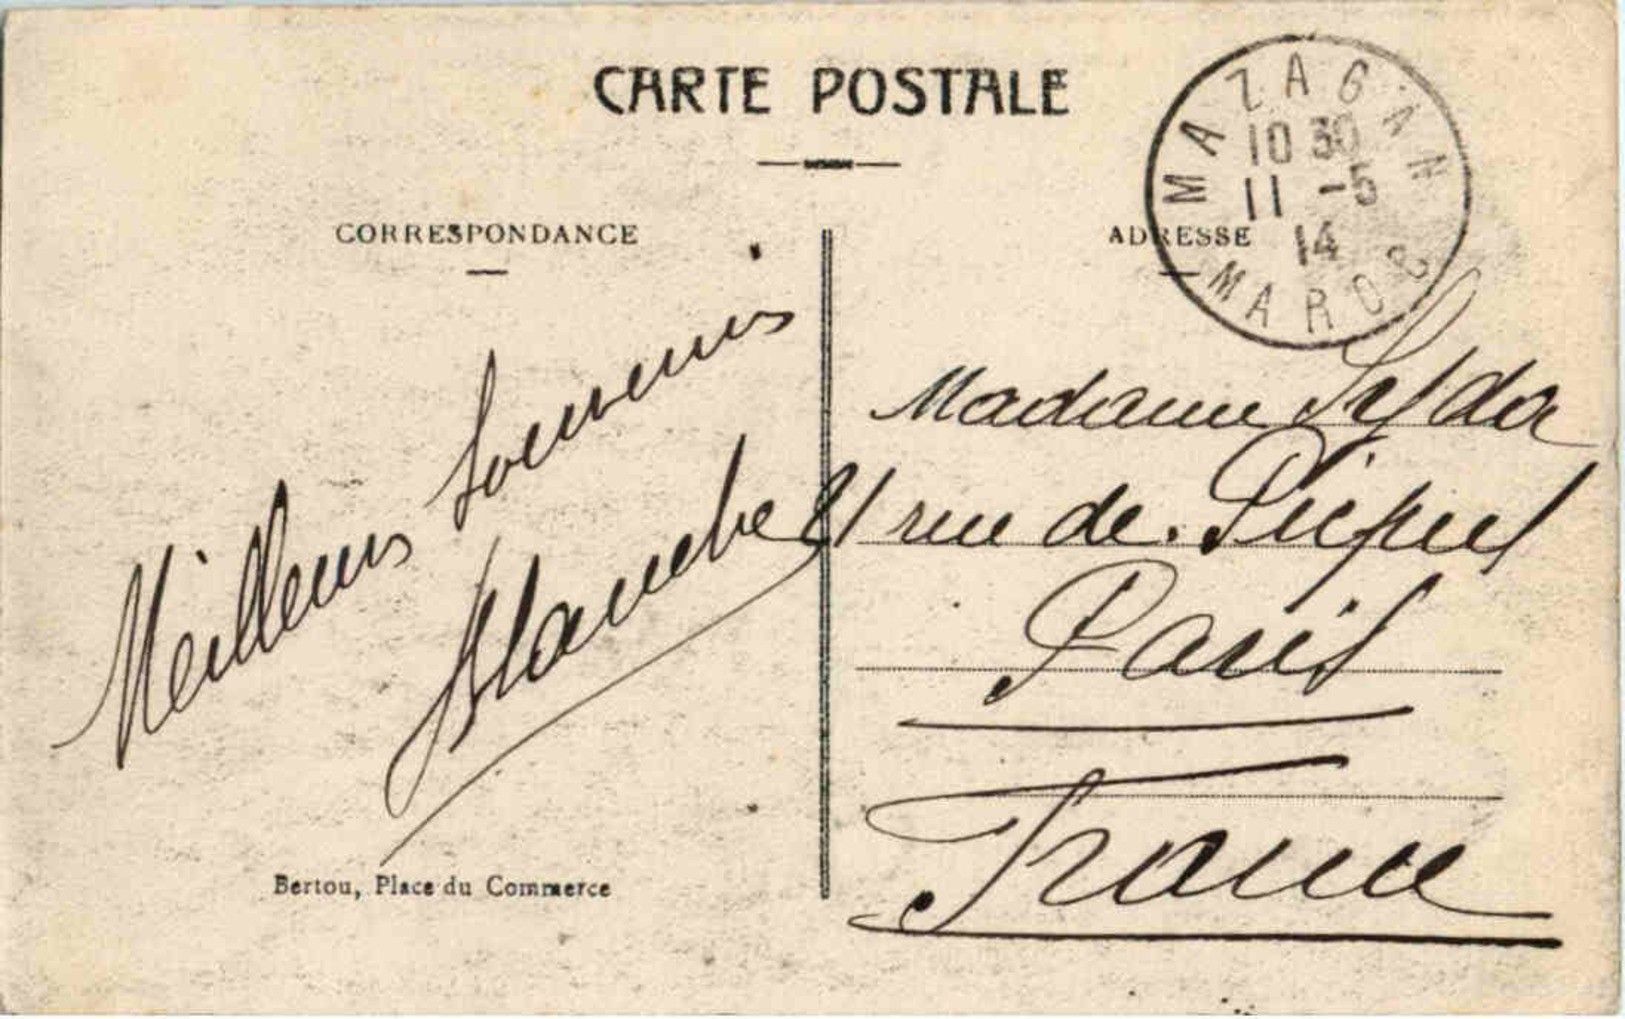 CARTE POSTALE
MAZAGAN
10 30
11 -5
14
MAROC
CORRESPONDANCE
ADRESSE
Meilleurs Souvenirs
Blanche
Madame Lydor
81 rue de Picpus
Paris
France
Bertou, Place du Commerce